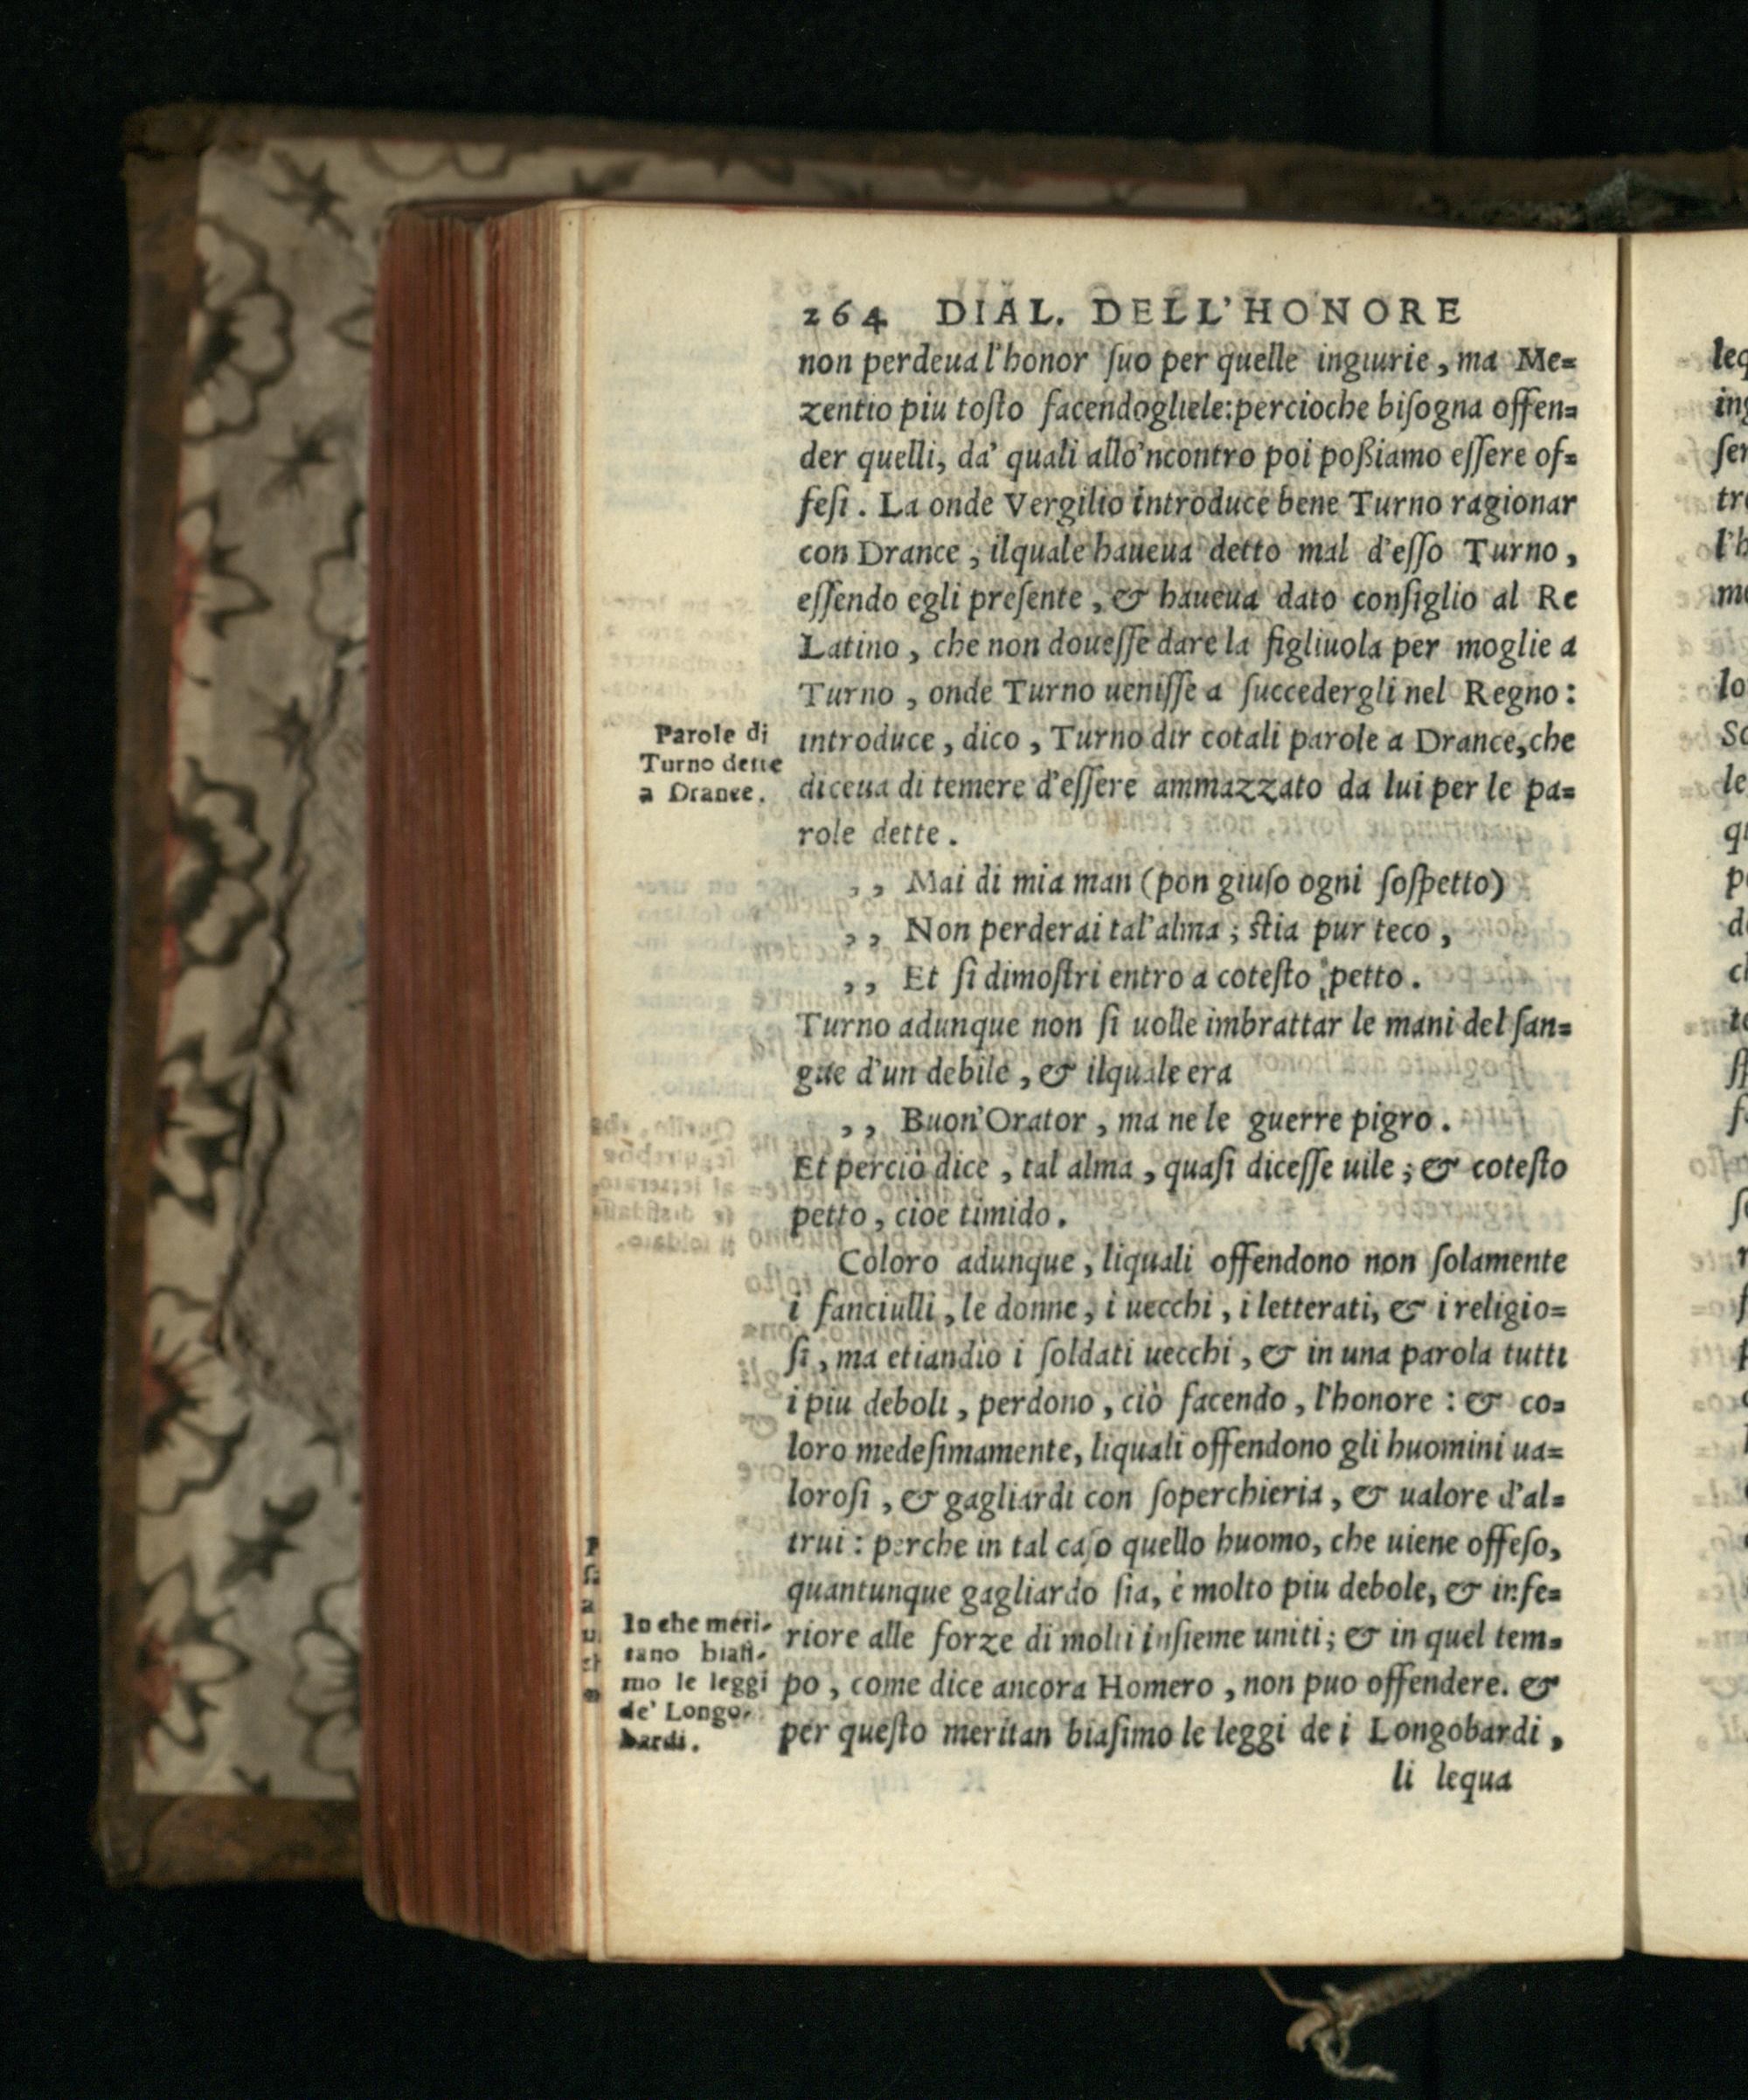 264 DIAL. DELL'HONORE
non perdeua l'honor ſuo per quelle ingiurie, ma Me=
zentio piu toſto facendogliele: percioche biſogna offen=
der quelli, da' quali allo'ncontro poi poßiamo eſſere of=
feſi. La onde Vergilio introduce bene Turno ragionar
con Drance, ilquale haueua detto mal d'eſſo Turno,
eſſendo egli preſente, & haueua dato conſiglio al Re
Latino, che non doueſſe dare la figliuola per moglie a
Turno, onde Turno ueniſſe a ſuccedergli nel Regno:
Parole di
Turno dette
a Drance.
introduce, dico, Turno dir cotali parole a Drance, che
diceua di temere d'eſſere ammazzato da lui per le pa=
role dette.
,, Mai di mia man (pon giuſo ogni ſoſpetto)
,, Non perderai tal'alma; ſtia pur teco,
,, Et ſi dimoſtri entro a coteſto petto.
Turno adunque non ſi uolle imbrattar le mani del ſan=
gue d'un debile, & ilquale era
,, Buon'Orator, ma ne le guerre pigro.
Et perciò dice, tal alma, quaſi diceſſe uile; & coteſto
petto, cioe timido.
Coloro adunque, liquali offendono non ſolamente
i fanciulli, le donne, i uecchi, i letterati, & i religio=
ſi, ma etiandio i ſoldati uecchi, & in una parola tutti
i piu deboli, perdono, ciò facendo, l'honore: & co=
loro medeſimamente, liquali offendono gli huomini ua=
loroſi, & gagliardi con ſoperchieria, & ualore d'al=
trui: perche in tal caſo quello huomo, che uiene offeſo,
quantunque gagliardo ſia, è molto piu debole, & infe=
In che meri-
tano biaſi-
mo le leggi
de' Longo-
bardi.
riore alle forze di molti inſieme uniti; & in quel tem=
po, come dice ancora Homero, non puo offendere. &
per queſto meritan biaſimo le leggi de i Longobardi,
li lequa